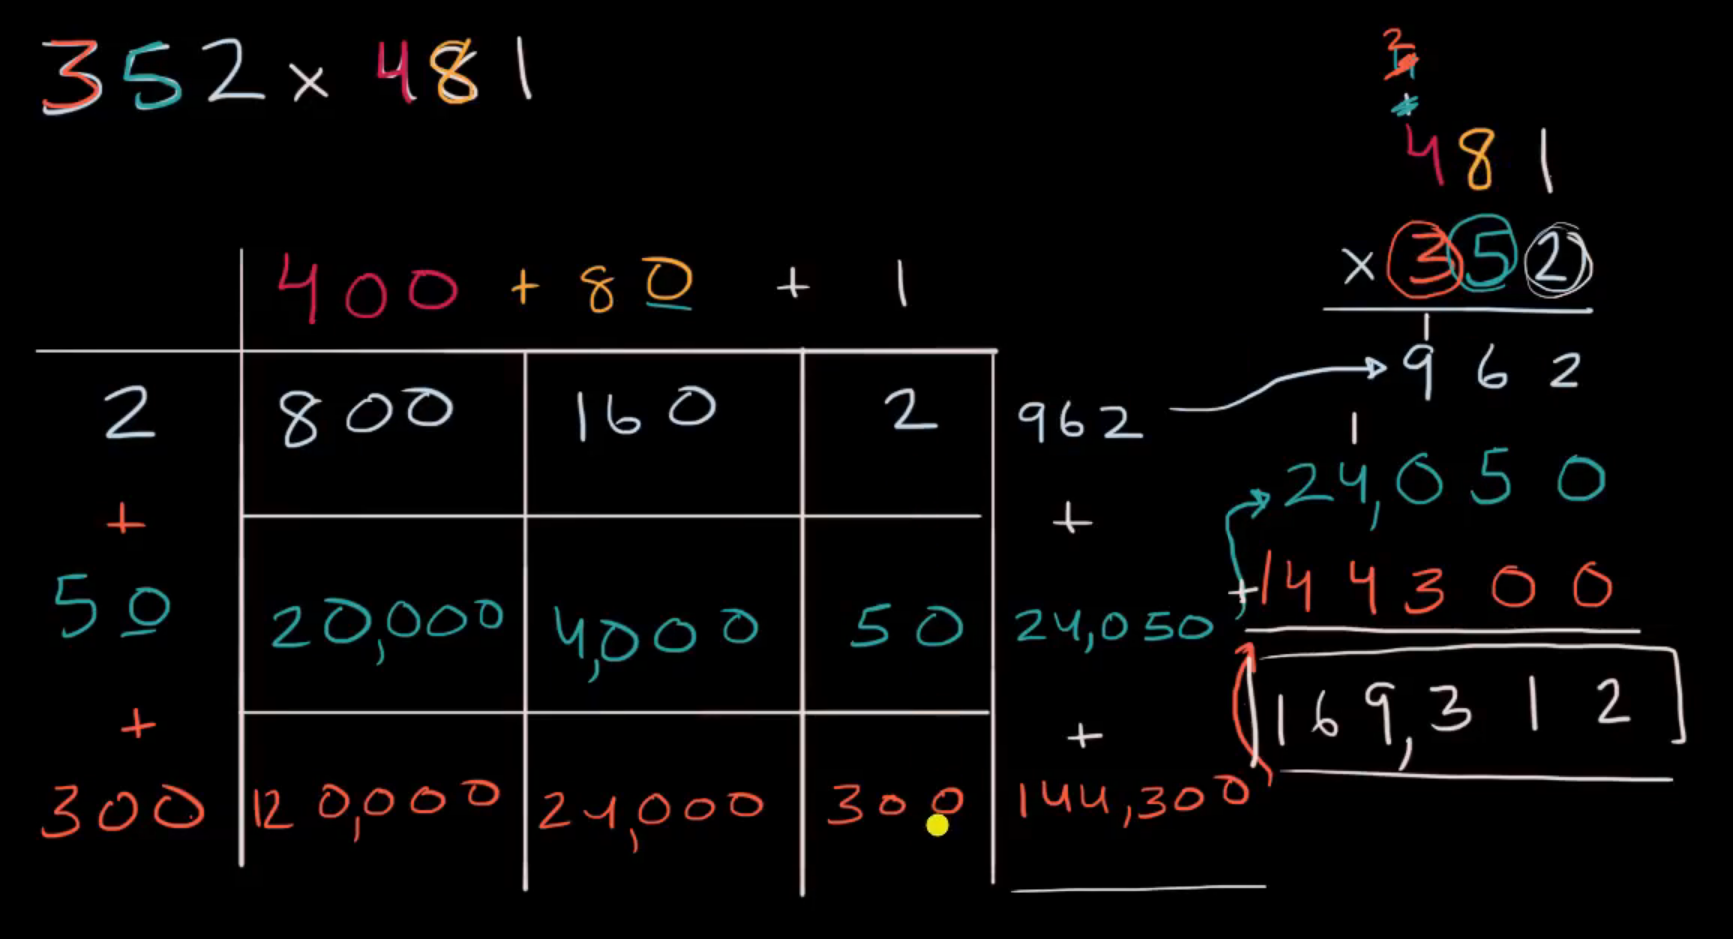 352 × 481
400 + 80 + 1
2 800 160 2 962
+ +
50 20,000 4,000 50 24,050
+ +
300 120,000 24,000 300 144,300
2
481
× 352
1
962
1
24,050
+ 144300
169,312